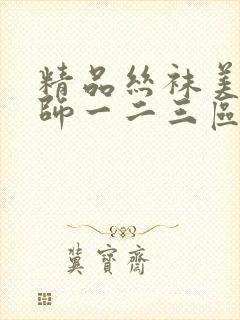 精品丝袜美
師一二三區
冀寶齋